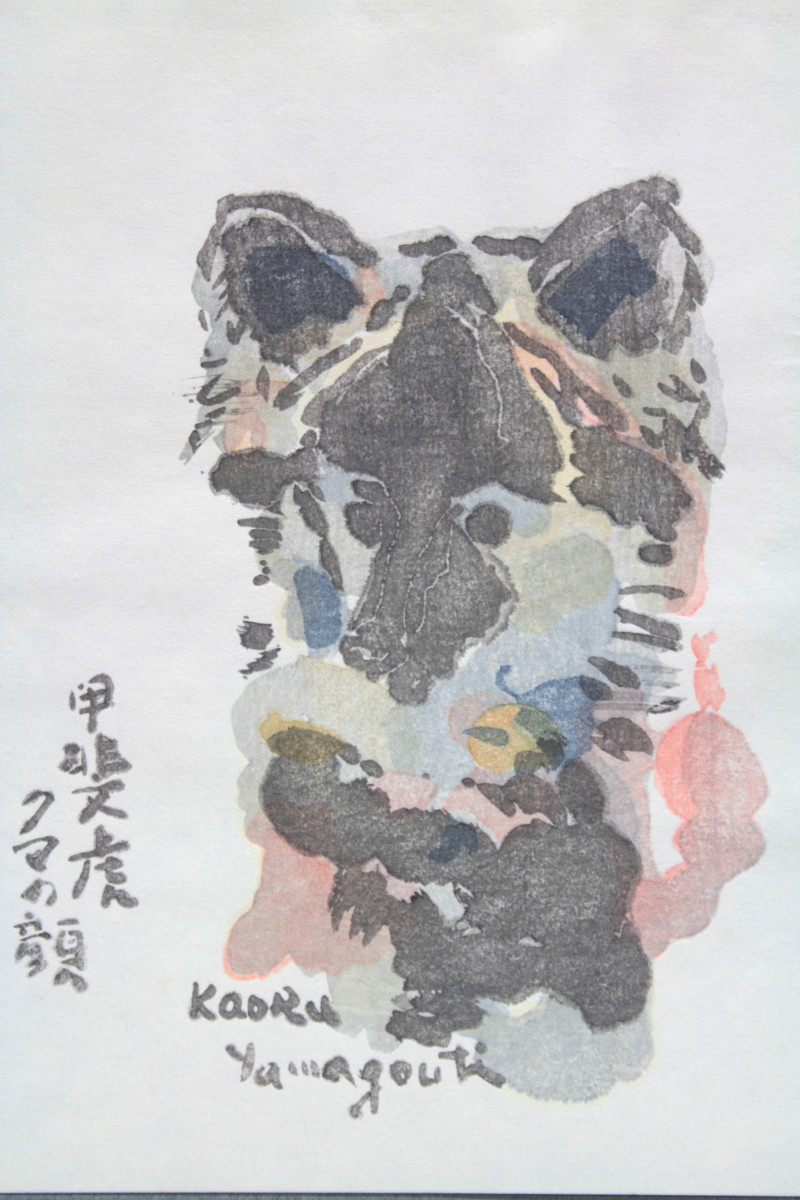 甲斐虎
クマの顔
Kaoru
Yamagouti